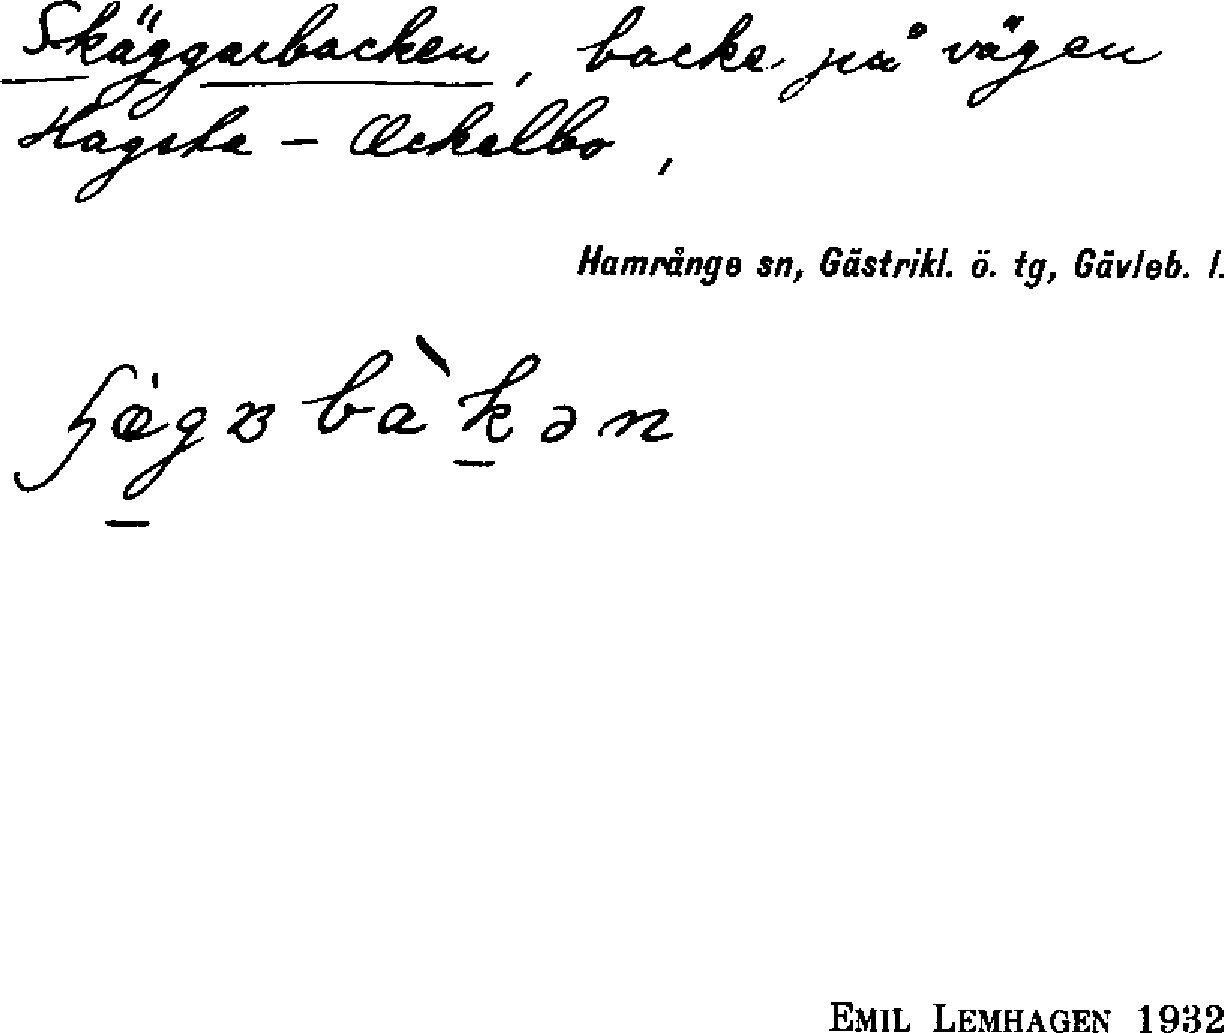 Skäggarbacken, backe på vägen
Hagsta – Ockelbo,
Hamrånge sn, Gästrikl. ö. tg, Gävleb. l.
EMIL LEMHAGEN 1932